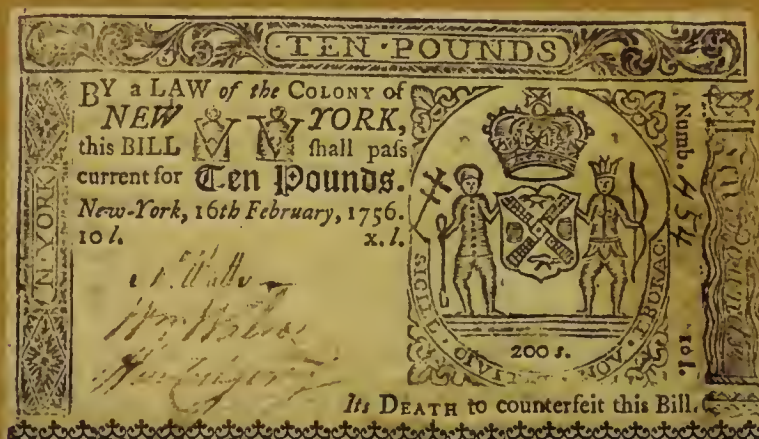 ·TEN·POUNDS
BY a LAW of the COLONY of
NEW YORK,
this BILL ſhall paſs
current for Ten Pounds.
New-York, 16th February, 1756.
10 l. x. l.
N·YORK
Numb. 454
10 l.
SIGILL. CIVITAT. NOV. EBORAC.
200 s.
Its DEATH to counterfeit this Bill.